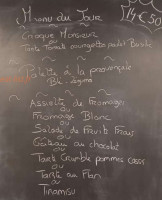 Menu du Jour
14€50
Croque Monsieur
ou
Tarte Tomate courgettes pesto Basilic
à la provençale
Blé
Assiette de Fromages
ou
Fromage Blanc
ou
Salade de Fruits Frais
ou
Gateau au chocolat
ou
Tarte Crumble pommes
ou
Tarte au Flan
ou
Tiramisu